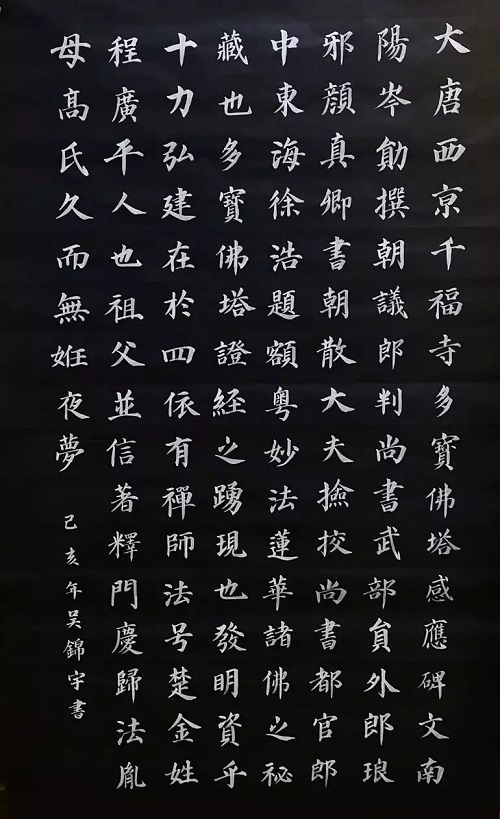 大唐西亰千福寺多寶佛塔感應碑文南
陽岑勛撰朝議郎判尚書武部貟外郎琅
邪顏真卿書朝散大夫撿挍尚書都官郎
中東海徐浩題額粵妙法蓮華諸佛之祕
藏也多寶佛塔證經之踴現也發明資乎
十力弘建在於四依有禪師法号楚金姓
程廣平人也祖父並信著釋門慶歸法胤
母髙氏久而無姙夜夢
己亥年吴錦宇書